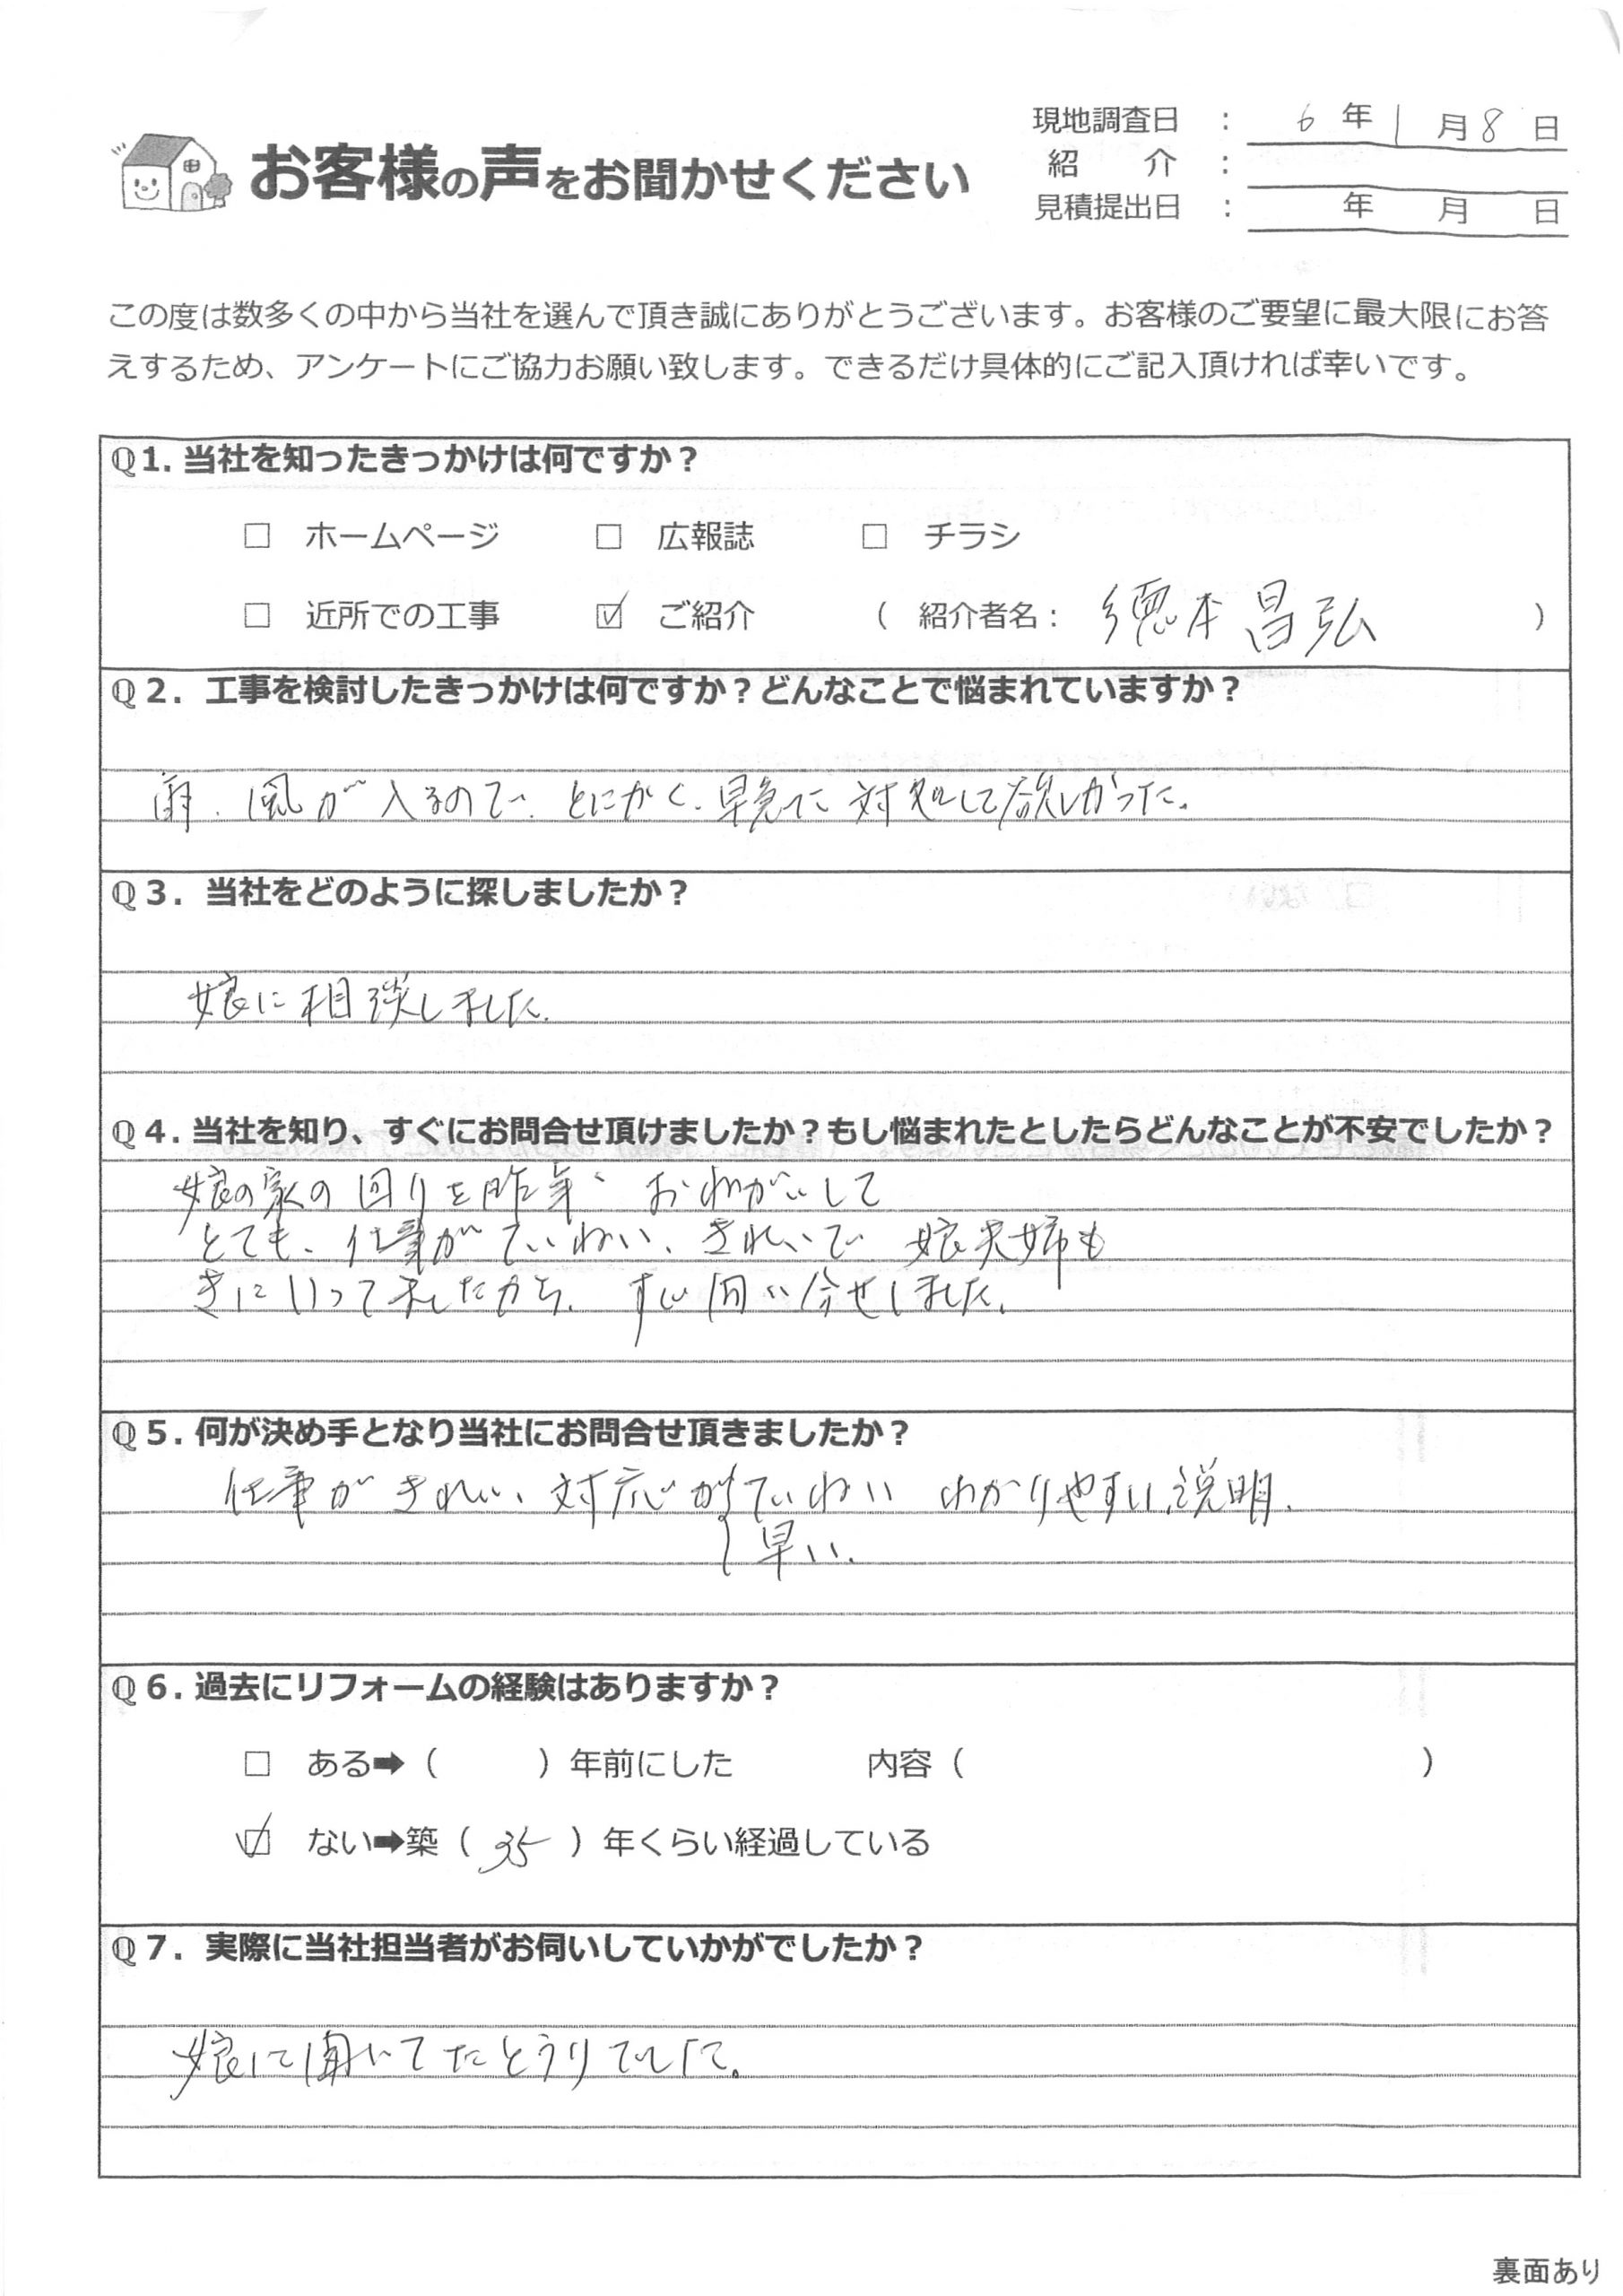 現地調査日 : 6年1月8日
紹介 :
見積提出日 : 年 月 日
お客様の声をお聞かせください
この度は数多くの中から当社を選んで頂き誠にありがとうございます。お客様のご要望に最大限にお答
えするため、アンケートにご協力お願い致します。できるだけ具体的にご記入頂ければ幸いです。
Q1. 当社を知ったきっかけは何ですか？
□ ホームページ □ 広報誌 □ チラシ
□ 近所での工事 ☑ ご紹介 ( 紹介者名: 德本昌弘 )
Q2. 工事を検討したきっかけは何ですか？どんなことで悩まれていますか？
雨、風が入るので、とにかく、早急に対処して欲しかった。
Q3. 当社をどのように探しましたか？
娘に相談しました。
Q4. 当社を知り、すぐにお問合せ頂けましたか？もし悩まれたとしたらどんなことが不安でしたか？
娘の家の回りを昨年、おねがいして
とても、仕事がていねい、きれいで 娘夫婦も
きにいってましたから、すぐ問い合せしました。
Q5. 何が決め手となり当社にお問合せ頂きましたか？
仕事がきれい、対応が{ていねい わかりやすい説明。
早い。
Q6. 過去にリフォームの経験はありますか？
□ ある➡（ ）年前にした 内容（ ）
☑ ない➡築（ 35 ）年くらい経過している
Q7. 実際に当社担当者がお伺いしていかがでしたか？
娘に聞いてたとうりでした。
裏面あり